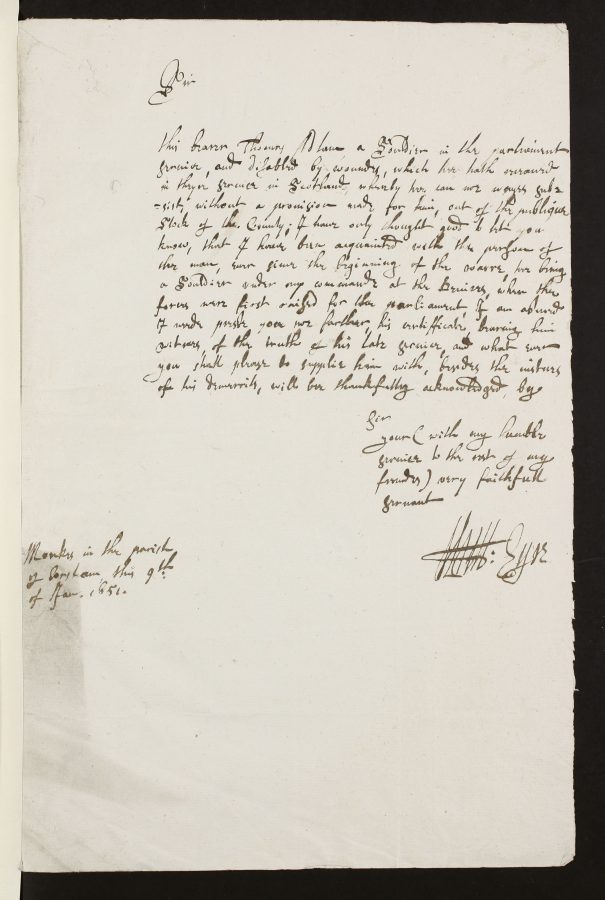 Sir
this bearer Thomas Adlam a Souldier in the parliament
service, and disabled by woundes, which hee hath receaved
in theyr service in Scotland, whereby hee can noe wayes sub=
=sist, without a provision made for him, out of the publique
Stock of the County; I have only thought good to let you
know, that I have been acquainted with the person of
the man, ever since the beginning of the warre, hee being
a Souldier under my commande at the Devizes, when the
forces were first raised for the parliament, I am assured
I neede presse you noe farther, his certifficate, bearing him
witnes of the truth of his late service, and what ever
you shall please to supplie him with, besides the
of his demerrits, will bee thankfully acknowledged, by
Sir
your (with my humble
service to the rest of my
freindes) very faithfull
servant
Will: Eyre
Monkes in the parish
of Corsham, this 9th
of Jan. 1651.